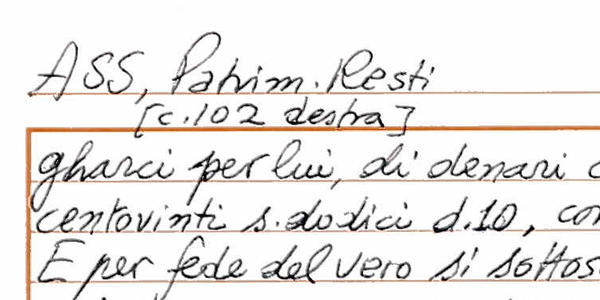 ASS, Patrim. Resti
[c.102 destra]
gharci per lui, di denari
centovinti s. dodici d.10, con
E per fede del vero si sottos